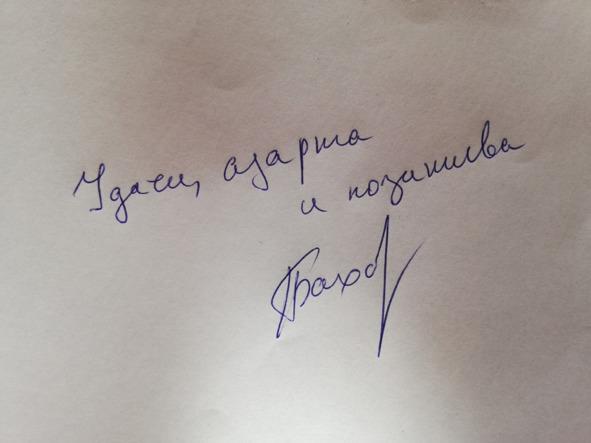 Удачи, азарта
и позитива